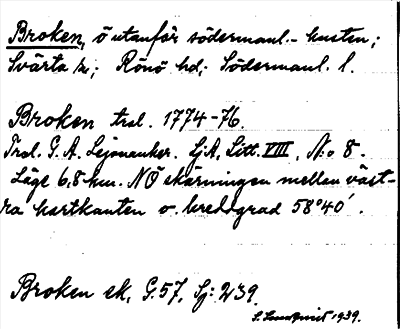 Broken, ö utanför södermanl.-kusten;
Svärta sn; Rönö hd; Södermanl. l.
Broken trol. 1774-76.
Trol. G. A. Lejonanker. Sj A, Litt. VIII, No 8.
Läge 6.8 km. NÖ skärningen mellan väst-
ra kartkanten o. breddgrad 58°40'.
Broken ek, G. 57, Sj: 239.
S. Lundqvist 1939.